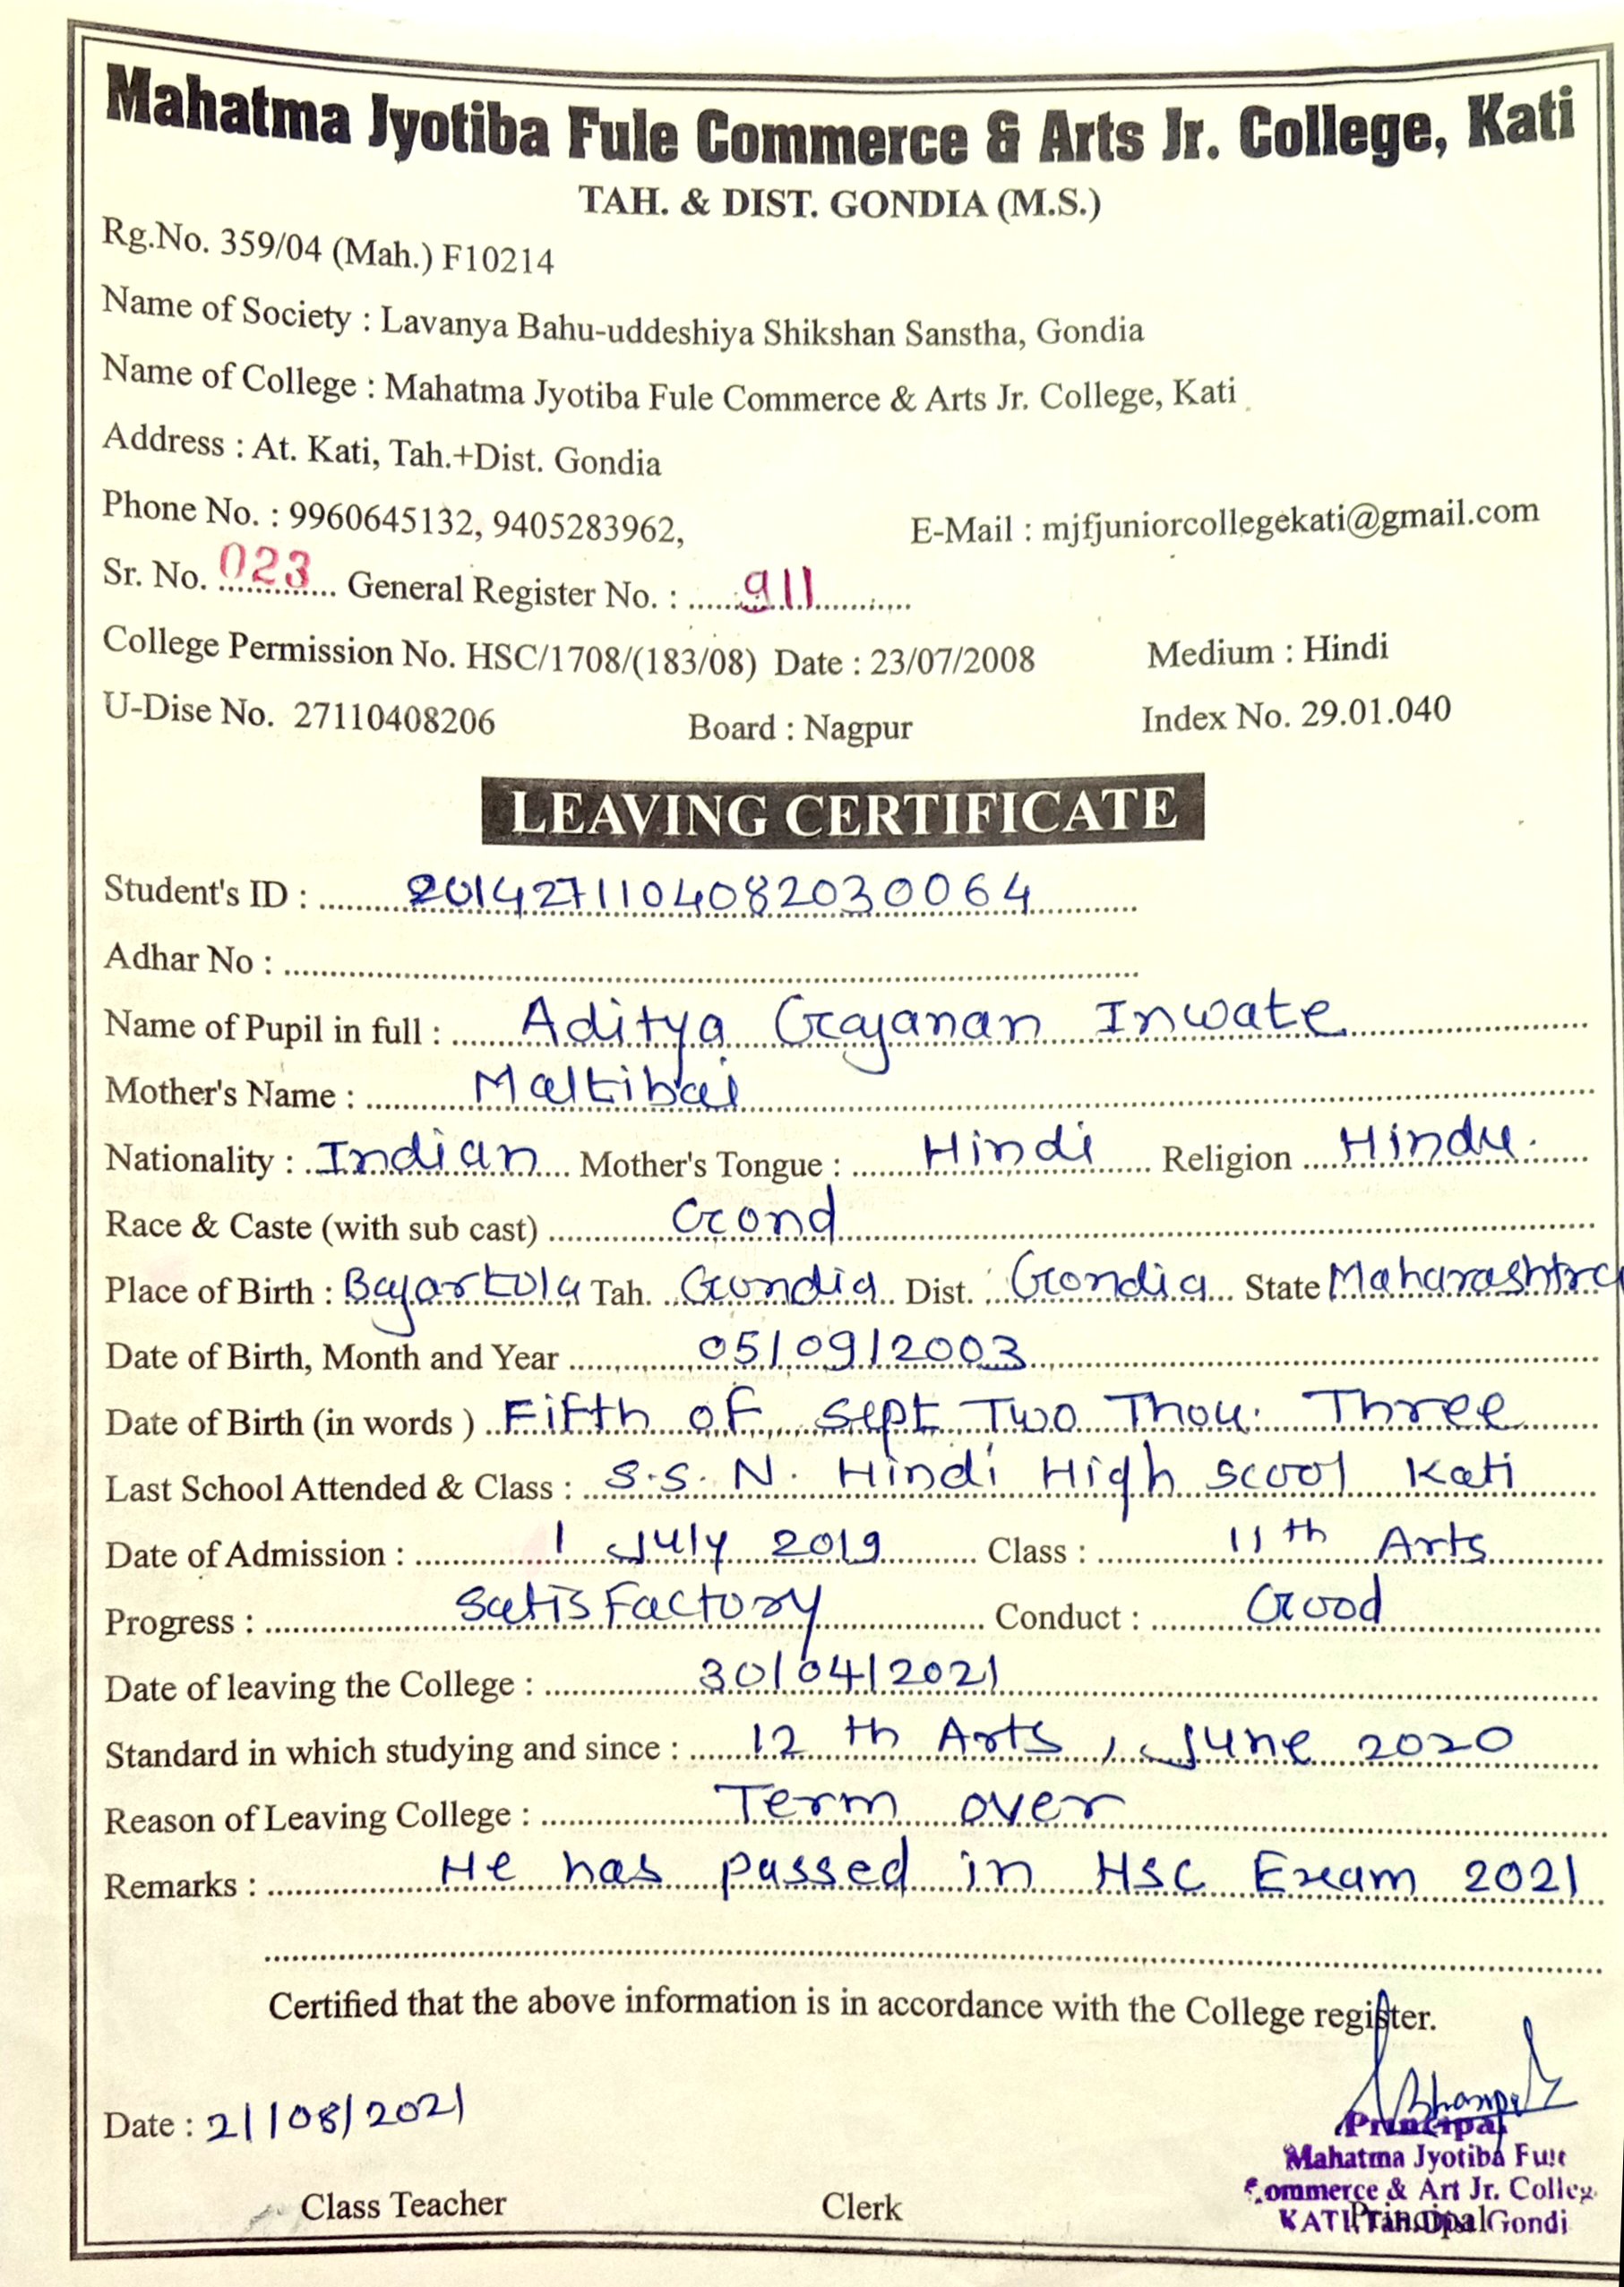 Mahatma Jyotiba Fule Commerce & Arts Jr. College, Kati
TAH. & DIST. GONDIA (M.S.)
Rg.No. 359/04 (Mah.) F10214
Name of Society : Lavanya Bahu-uddeshiya Shikshan Sanstha, Gondia
Name of College : Mahatma Jyotiba Fule Commerce & Arts Jr. College, Kati
Address : At. Kati, Tah.+Dist. Gondia
Phone No. : 9960645132, 9405283962, E-Mail : mjfjuniorcollegekati@gmail.com
Sr. No. 023 General Register No. : 911
College Permission No. HSC/1708/(183/08) Date : 23/07/2008 Medium : Hindi
U-Dise No. 27110408206 Board : Nagpur Index No. 29.01.040
LEAVING CERTIFICATE
Student's ID : 2014271104082030064
Adhar No :
Name of Pupil in full : Aditya Gajanan Inwate
Mother's Name : Maltibai
Nationality : Indian Mother's Tongue : Hindi Religion Hindu.
Race & Caste (with sub cast) Gond
Place of Birth : Bajartola Tah. Gondia Dist. Gondia State Maharashtra
Date of Birth, Month and Year 05/09/2003
Date of Birth (in words ) Fifth of Sept Two Thou. Three
Last School Attended & Class : S.S. N. Hindi High scool Kati
Date of Admission : 1 July 2019 Class : 11th Arts
Progress : Satisfactory Conduct : Good
Date of leaving the College : 30/04/2021
Standard in which studying and since : 12 th Arts, June 2020
Reason of Leaving College : Term over
Remarks : He has passed in HSC Exam 2021
Certified that the above information is in accordance with the College register.
Date : 21/08/2021
Principal
Mahatma Jyotiba Fule
Commerce & Art Jr. Colleg
Class Teacher Clerk Principal
KATI Tah. Dist Gondi